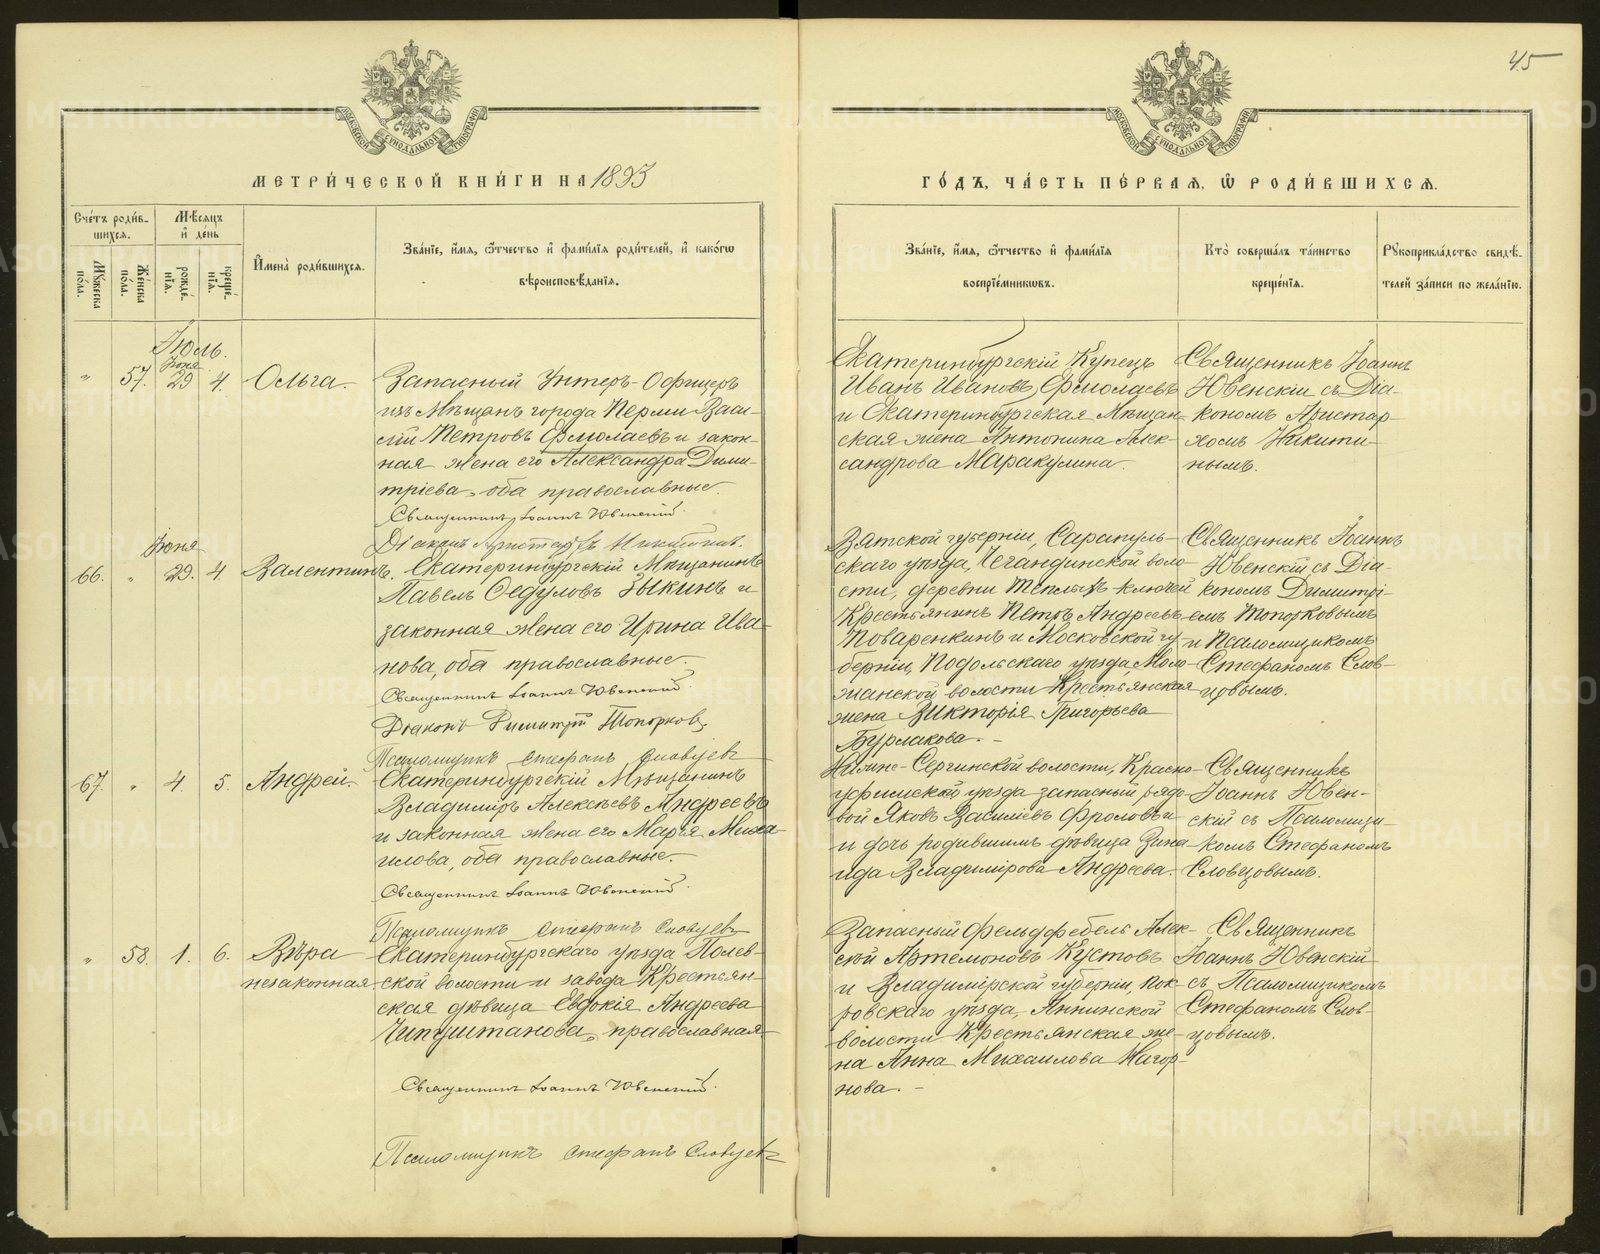 45
МОСКОВСКОЙ СѴНОДАЛЬНОЙ ТИПОГРАФІИ
МОСКОВСКОЙ СѴНОДАЛЬНОЙ ТИПОГРАФІИ
МЕТРИ́ЧЕСКОЙ КНИ́ГИ НА 1893
ГО́ДЪ, ЧА́СТЬ ПЕ́РВАЯ, Ѡ РОДИ́ВШИХСѦ.
Сче́тъ роди́в-
шихсѧ.
Мꙋжеска по́ла.
Же́нска по́ла.
Мѣ́сѧцъ
и҆ день
рожде́-
нїѧ.
креще́-
нїѧ.
И҆мена̀ роди́вшихсѧ.
Зва́нїе, и҆́мѧ, ѻ҆́тчество и҆ фами́лїѧ роди́телей, и҆ како́гѡ
вѣроисповѣ́данїѧ.
Зва́нїе, и҆́мѧ, ѻ҆́тчество и҆ фами́лїѧ
воспрїе́мникѡвъ.
Кто̀ соверша́лъ та́инство
креще́нїѧ.
Рꙋкоприкла́дство свидѣ́-
телей за́писи по жела́нїю.
Іюль.
Іюня
" 57. 29 4. Ольга.
Запасный Унтеръ-Офицеръ
изъ Мѣщанъ города Перми Васи-
лій Петровъ Ермолаевъ и закон-
ная жена его Александра Дими-
тріева, оба православные.
Священникъ Іоаннъ Ювенскій.
Діаконъ Аристархъ Никитинъ.
Екатеринбургскій Купецъ
Иванъ Ивановъ Ермолаевъ
и Екатеринбургская Мѣщан-
ская жена Антонина Алек-
сандрова Маракулина.
Священникъ Іоаннъ
Ювенскій съ Діа-
кономъ Аристар-
хомъ Никити-
нымъ.
Іюня
66. " 29. 4. Валентинъ.
Екатеринбургскій Мѣщанинъ
Павелъ Федуловъ Зыкинъ и
законная жена его Ирина Ива-
нова, оба православные.
Священникъ Іоаннъ Ювенскій.
Діаконъ Димитрій Топорковъ.
Псаломщикъ Стефанъ Словцевъ
Вятской губерніи, Сарапуль-
скаго уѣзда, Чегандинской воло-
сти, деревни Теплыхъ-ключей
Крестьянинъ Петръ Андреевъ
Поваренкинъ и Московской гу-
берніи, Подольскаго уѣзда, Моло-
жанской волости Крестьянская
жена Викторія Григорьева
Бурлакова.
Священникъ Іоаннъ
Ювенскій съ Діа-
кономъ Димитрі-
емъ Топорковымъ
и Псаломщикомъ
Стефаномъ Слов-
цовымъ.
67. " 4. 5. Андрей.
Екатеринбургскій Мѣщанинъ
Владиміръ Алексѣевъ Андреевъ
и законная жена его Марія Миха-
илова, оба православные.
Священникъ Іоаннъ Ювенскій.
Псаломщикъ Стефанъ Словцевъ
Нижне-Сергинской волости, Красно-
уфимскаго уѣзда запасный рядо-
вой Яковъ Васильевъ Фроловъ и
и дочь родившимъ дѣвица Зина-
ида Владимірова Андреева.
Священникъ
Іоаннъ Ювен-
скій съ Псаломщи-
комъ Стефаномъ
Словцовымъ.
" 58. 1. 6. Вѣра
незаконная
Екатеринбургскаго уѣзда Полев-
ской волости и завода Крестьян-
ская дѣвица Евдокія Андреева
Чипуштанова, православная.
Священникъ Іоаннъ Ювенскій.
Псаломщикъ Стефанъ Словцевъ
Запасный фельдфебель Алек-
сѣй Артемоновъ Кустовъ
и Владимірской губерніи, Пок-
ровскаго уѣзда, Аннинской
волости Крестьянская же-
на Анна Михаилова Нагор-
нова.
Священникъ
Іоаннъ Ювенскій
съ Псаломщикомъ
Стефаномъ Слов-
цовымъ.
METRIKI.GASO-URAL.RU